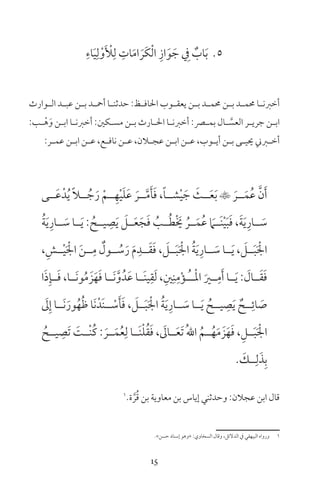 ٥. بَابٌ فِي جَوَازِ الْكَرَامَاتِ لِلْأَوْلِيَاءِ
أخبرنـا محمـد بـن محمـد بـن يعقـوب الحافـظ: حدثنـا أحمـد بـن عبـد الـوارث
ابـن جريـر العسَّـال بمصـر: أخبرنـا الحـارث بـن مسـكين: أخبرنـا ابـن وَهْـب:
أخـبرني يحيـى بـن أيـوب، عـن ابـن عجـلان، عـن نافـع، عـن ابـن عمـر:
أَنَّ عُمَـرَ ﷺ بَعَـثَ جَيْشًـا، فَأَمَّـرَ عَلَيْهِـمْ رَجُـلاً يُدْعَـى
سَـارِيَةَ، فَبَيْنَـمَا عُمَـرُ يَخْطُـبُ فَجَعَـلَ يَصِيـحُ: يَـا سَـارِيَةُ
الْجَبَـلَ، يَـا سَـارِيَةُ الْجَبَـلَ، فَقَـدِمَ رَسُـولٌ مِـنَ الْجَيْـشِ،
فَقَـالَ: يَـا أَمِـيرَ الْمُـؤْمِنِينَ، لَقِينَـا عَدُوَّنَـا فَهَزَمُونَـا، فَـإِذَا
صَائِـحٌ يَصِيـحُ يَـا سَـارِيَةُ الْجَبَـلَ، فَأَسْـنَدْنَا ظُهُورَنَـا إِلَى
الْجَبَـلِ، فَهَزَمَهُـمُ اللهُ تَعَـالَى، فَقُلْنَـا لِعُمَـرَ: كُنْـتَ تَصِيـحُ
بِذَلِـكَ.
قال ابن عجلان: وحدثني إياس بن معاوية بن قُرَّة.١
١ ورواه البيهقي في الدلائل، وقال السخاوي: «وهو إسناد حسن».
15